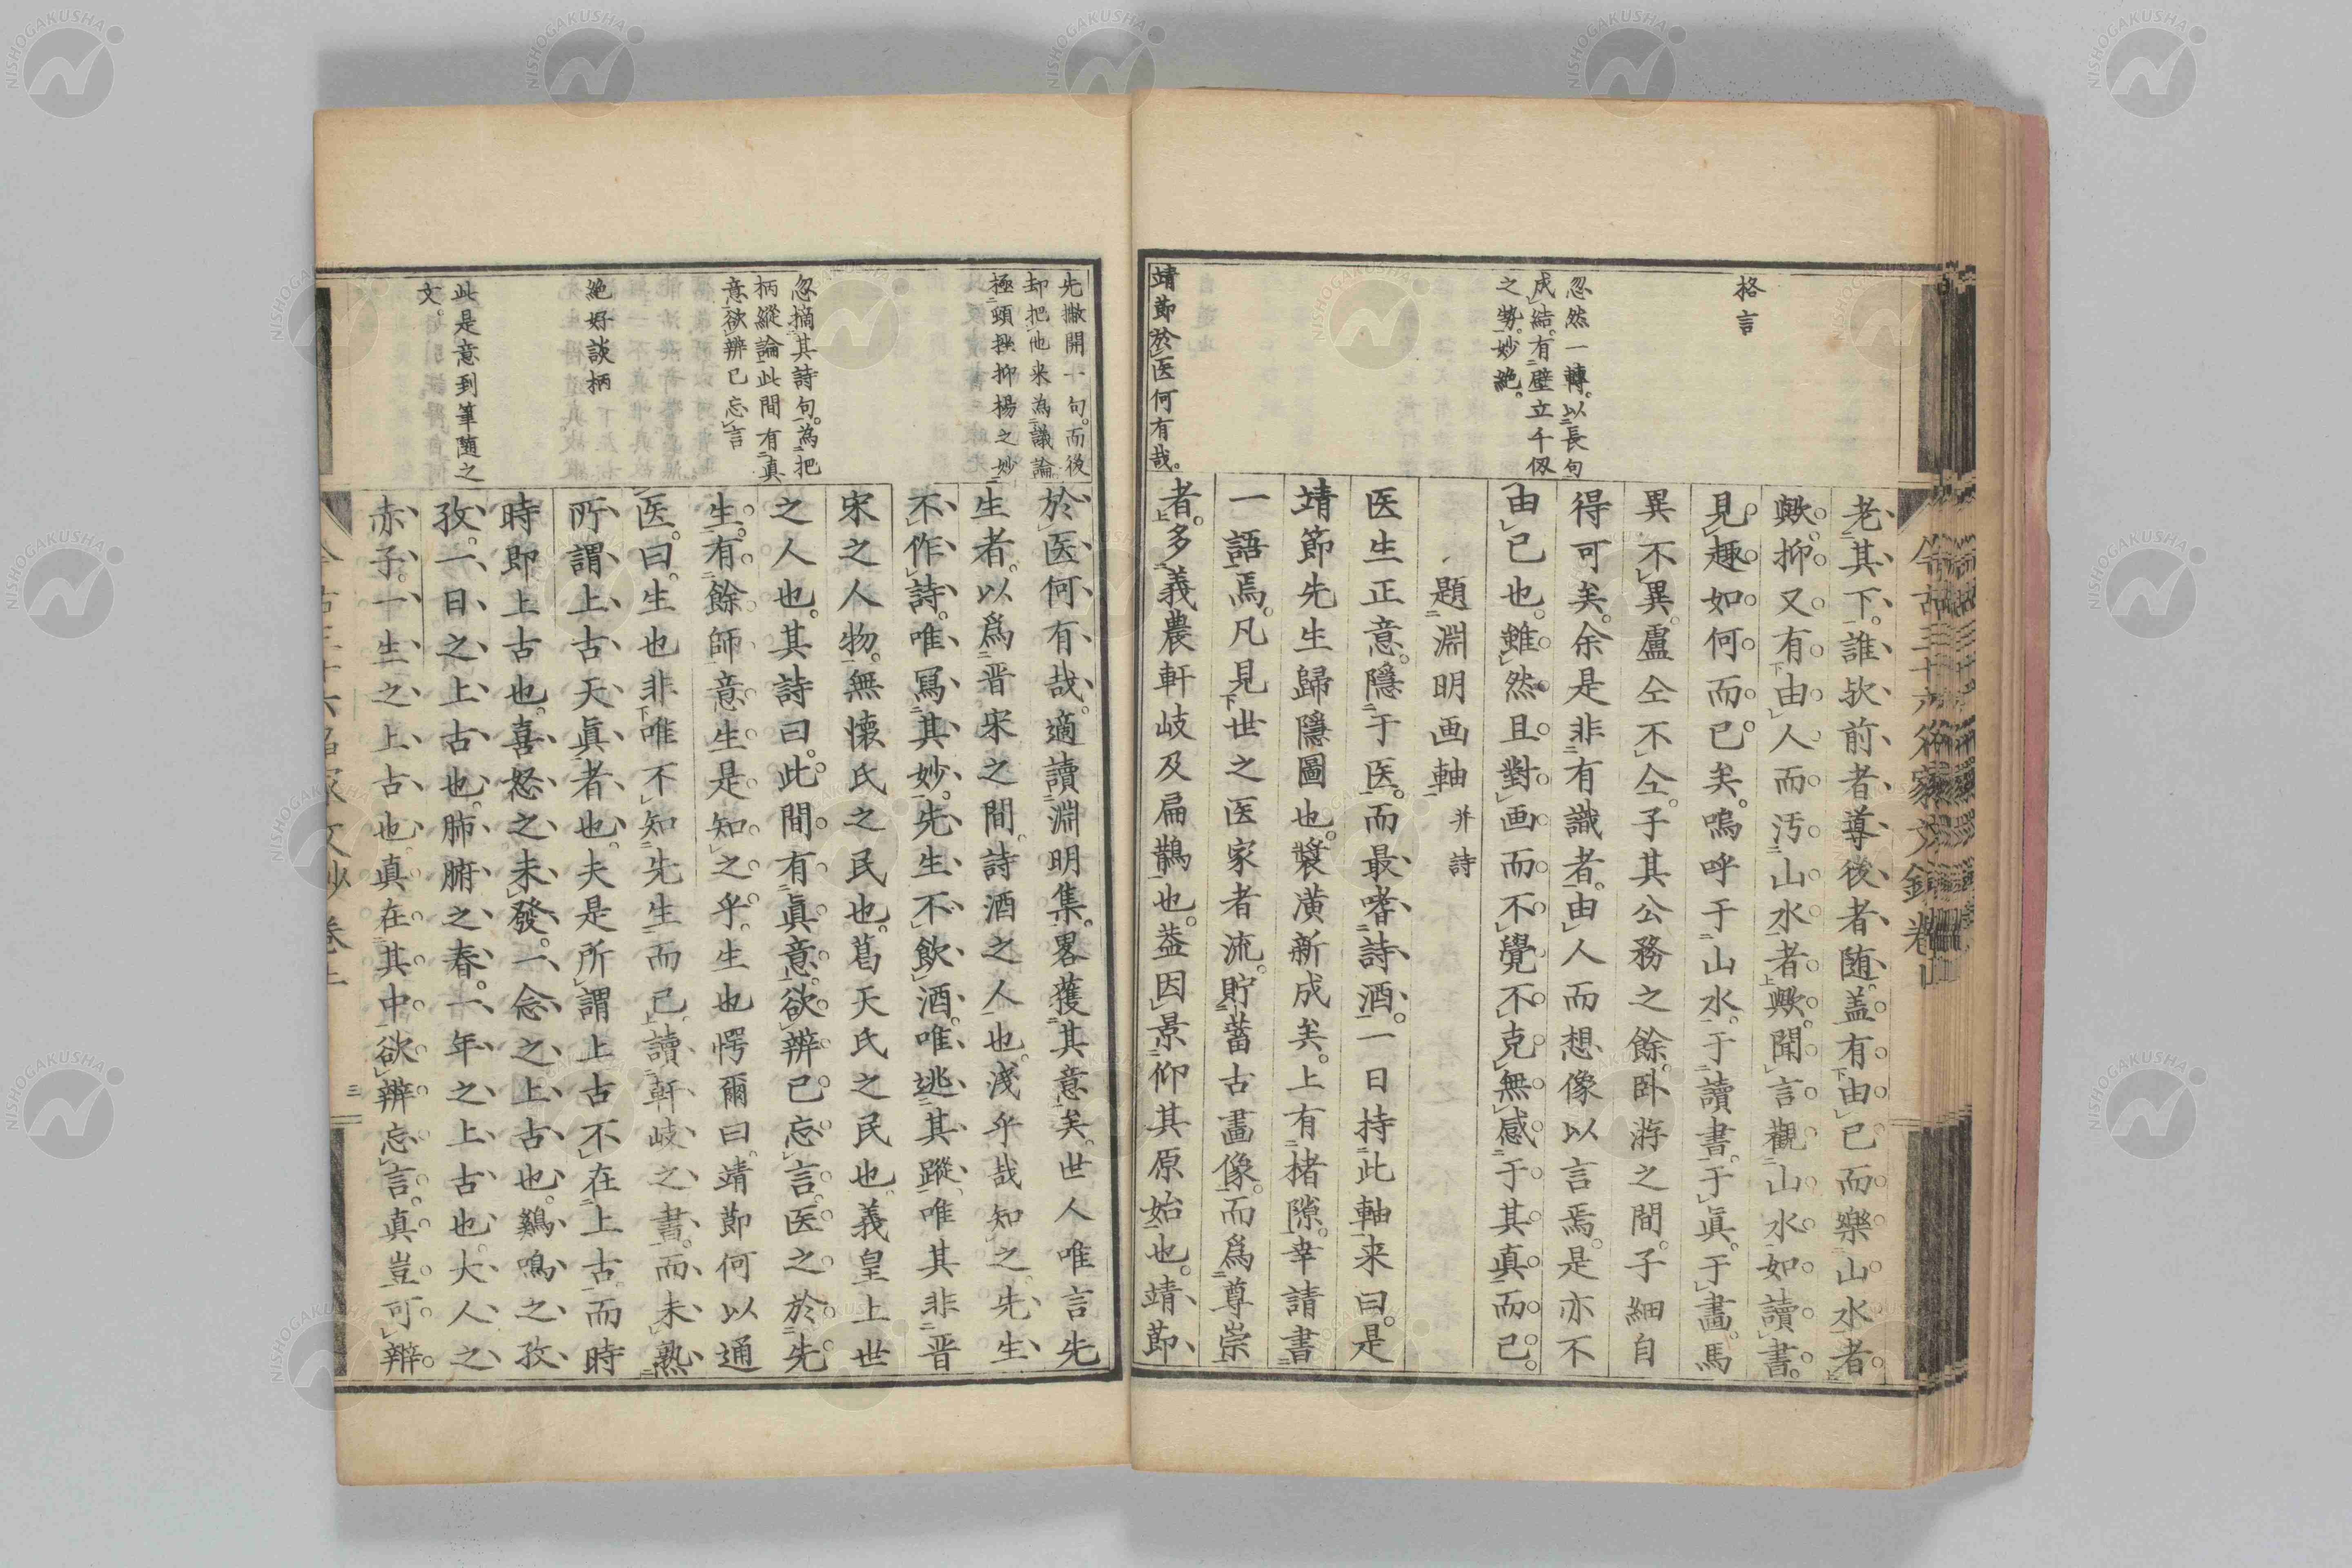 格言
忽然一轉。以長句
成結。有壁立千仭
之勢。妙絶。
靖節於医何有哉。
老其下。誰欤前者導後者随。盖有由己而樂山水者
歟。抑又有由人而汚山水者歟。聞言觀山水如讀書。
見趣如何而已矣。嗚呼于山水。于讀書。于眞。于畫。焉
異不異。盧仝不仝。子其公務之餘。卧游之間。子細自
得可矣。余是非有識者。由人而想像以言焉。是亦不
由已也。雖然且對画而不覺不克無感于其真而已。
題淵明画軸 并詩
医生正意。隱于医。而最嗜詩酒。一日持此軸来曰。是
靖節先生歸隱圖也。裝潢新成矣。上有楮隙。幸請書
一語焉。凡見世之医家者流。貯蓄古畫像。而爲尊崇
者。多義農軒岐及扁鵲也。葢因景仰其原始也。靖節
先撇開一句。而後
却把他来為議論
極頓挫抑揚之妙
忽摘其詩句。為把
柄縱論此間有真
意欲辨已忘言
絶好談柄
此是意到筆随之
文。
於医何有哉。適讀淵明集。畧獲其意矣。世人唯言先
生者。以爲晋宋之間。詩酒之人也。淺乎哉知之。先生
不作詩。唯寫其妙。先生不飲酒。唯逃其蹤。唯其非晋
宋之人物。無懐氏之民也。葛天氏之民也。義皇上世
之人也。其詩曰。此間有眞意。欲辨已忘言。医之於先
生。有餘師意生是知之乎。生也愕爾曰。靖節何以通
医。曰。生也非唯不知先生而已。讀軒岐之書。而未熟
所謂上古天眞者也。夫是所謂上古不在上古。而時
時即上古也。喜怒之未發。一念之上古也。鷄鳴之孜
孜。一日之上古也。肺腑之春。一年之上古也。大人之
赤子。一生之上古也。真在其中。欲辨忘言。真豈可辨
今古三十六名家文抄卷上
三